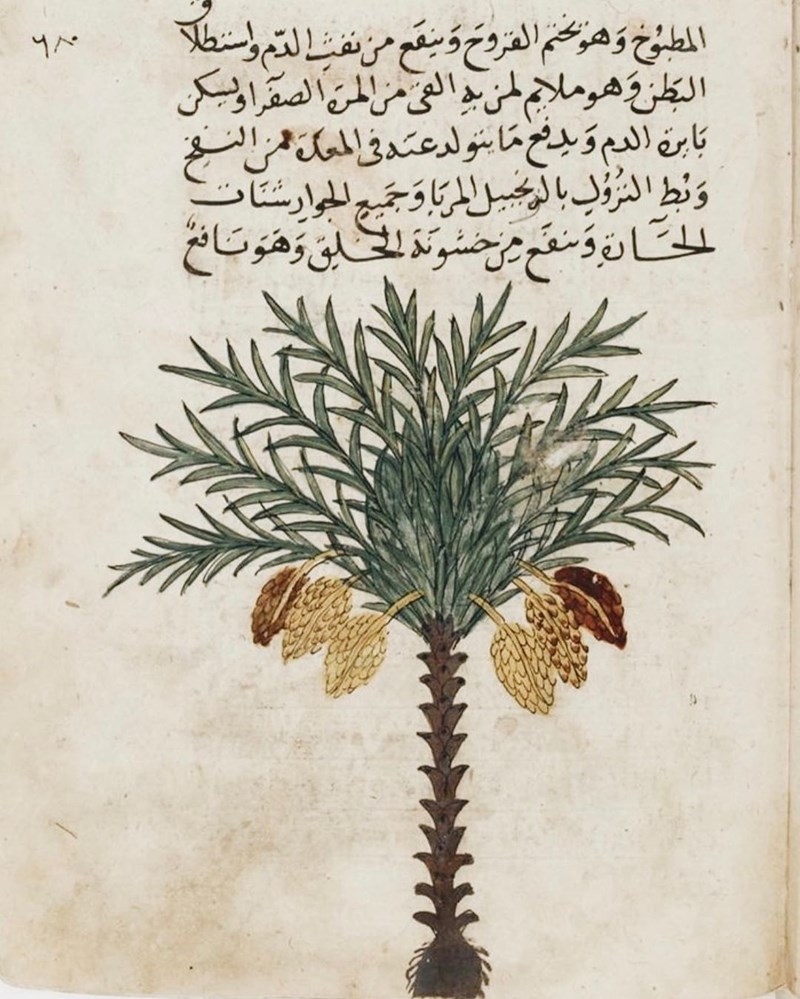 المطبوخ وهو يختم القروح وينفع من نفث الدم واستطلاق
البطن وهو ملايم لمن به القى من المرة الصفرا ويسكن
الدم ويدفع ما يتولد عنه فى المعدة من النفخ
النزول بالزنجبيل المربا وجميع الجوارشنات
الحارة وينفع من خشونة الحلق وهو نافع